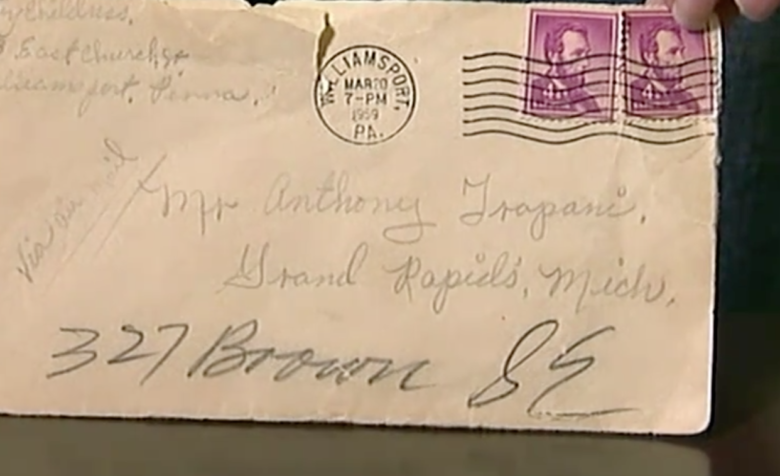 Childress,
East Church St
Williamsport, Penna.
WILLIAMSPORT, PA.
MAR 20
7-PM
1959
Via air mail
Mr Anthony Trapani,
Grand Rapids, Mich.
327 Brown SE